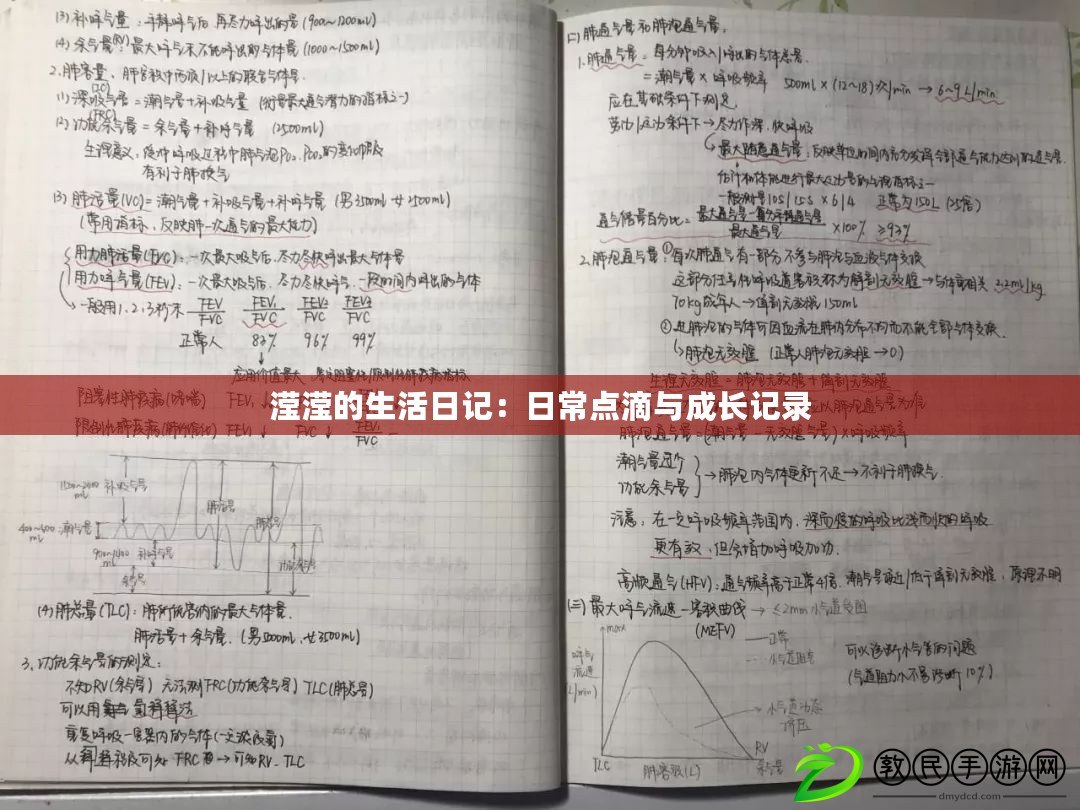 (3) 补呼气量：平静呼气后，再尽力呼出的量(900~1200ml)
(4) 余气量(RV)：最大呼气末不能呼出的气体量(1000~1500ml)
2. 肺容量：肺容积中两项/以上的联合气体量.
(1) 深吸气量(IC)=潮气量+补吸气量 (衡量最大通气潜力的指标之一)
(2) 功能余气量(FRC)=余气量+补呼气量 (2500ml)
生理意义：缓冲呼吸过程中肺气泡PO₂、PCO₂的变化幅度
有利于肺换气
(3) 肺活量(VC)=潮气量+补吸气量+补呼气量 (男3500ml 女2500ml)
(常用指标，反映肺一次通气的最大能力)
用力肺活量(FVC)：一次最大吸气后，尽力尽快呼出最大气体量
用力呼气量(FEV)：一次最大吸气后，尽力尽快呼气，一段时间内呼出的气体
一般用1、2、3秒末 FEV/FVC FEV₁/FVC FEV₂/FVC FEV₃/FVC
正常人 83% 96% 99%
应用价值最大
阻塞性肺疾病(哮喘) FEV₁
FEV₁↓ FVC↓ FEV₁/FVC
滢滢的生活日记：日常点滴与成长记录
补吸气量
400~500 ml 潮气量
补呼气量
余气量
肺活量
肺总量
功能余气量
(4) 肺总量(TLC)：肺所能容纳的最大气体量.
肺活量+余气量. (男5000ml、女3500ml)
3. 功能余气量的测定：
不知RV(余气量) 无法测FRC(功能余气量) TLC(肺总量)
可以用氦气 氦稀释法
重复呼吸一容器内的气体(一定浓度氦)
从稀释程度可知 FRC → 可知RV、TLC
(二) 肺通气量和肺泡通气量.
1. 肺通气量=每分钟吸入/呼出的气体总量.
=潮气量×呼吸频率 500ml×(12~18)次/min → 6~9L/min.
应在基础条件下测定.
劳动/运动条件下→尽力作深、快呼吸
最大随意通气量：反映单位时间内充分发挥全部通气能力达到的通气量.
估计机体能进行最大运动量的生理指标之一
一般测量10s/15s ×6/4 正常为150L (25倍)
通气储量百分比=最大通气量-每分平静通气量/最大通气量×100% ≥93%
2. 肺泡通气量：①每次肺通气有一部分不参与肺泡与血液气体交换
这部分任意的呼吸道容积称为解剖无效腔→与体重相关 2.2ml/kg
70kg成年人→解剖无效腔150ml
②进肺泡的气体可因血流在肺内分布不均而不能全部气体交换.
肺泡无效腔 (正常人肺泡无效腔→0)
生理无效腔=肺泡无效腔+解剖无效腔
肺泡通气量=(潮气量-无效腔气量)×呼吸频率
潮气量过少
功能余气量
→肺泡内气体更新不足→不利于肺换气.
注意：在一定呼吸频率范围内，深而慢的呼吸比浅而快的呼吸
更有效，但会增加呼吸做功.
高频通气(HFV)：通气频率高于正常4倍、潮气量接近/低于解剖无效腔，原理不明
(三) 最大呼气流速-容积曲线→≤2mm小气道受阻
(MEFV)
max
呼气流速(L/min)
正常
小气道阻塞
小气道动态挤压
可以诊断小气管的问题
(气道阻力小不易诊断10%)
TLC 肺容积(L) RV 余气量
教民手游网
dmydcd.com